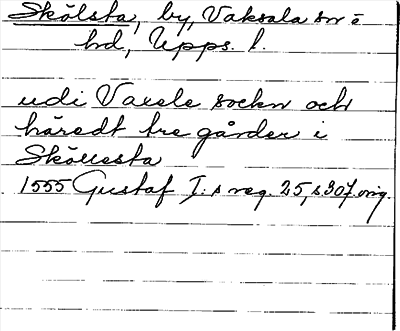 Skölsta, by, Vaksala sn o
hd, Upps. l.
udi Vaxele sockn och
häredt tre gårder i
Sköllesta
1555 Gustaf I:s reg. 25, s 307. orig.